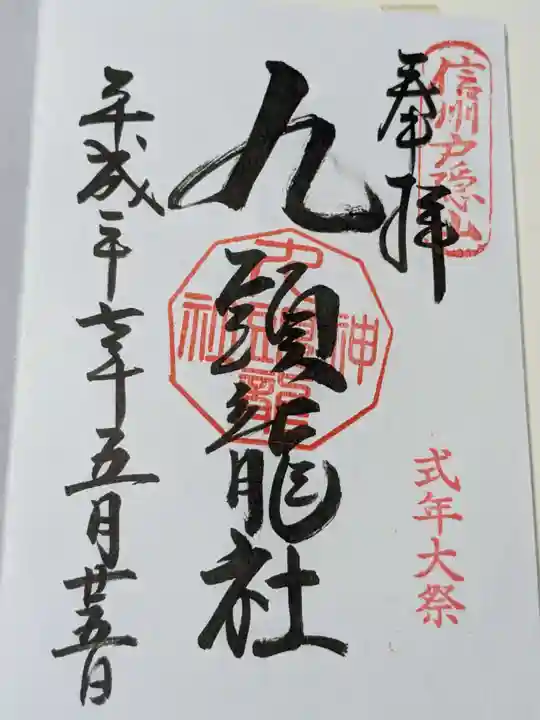 信州戸隠山
奉拝
式年大祭
九頭龍社
平成二十七年五月廿五日